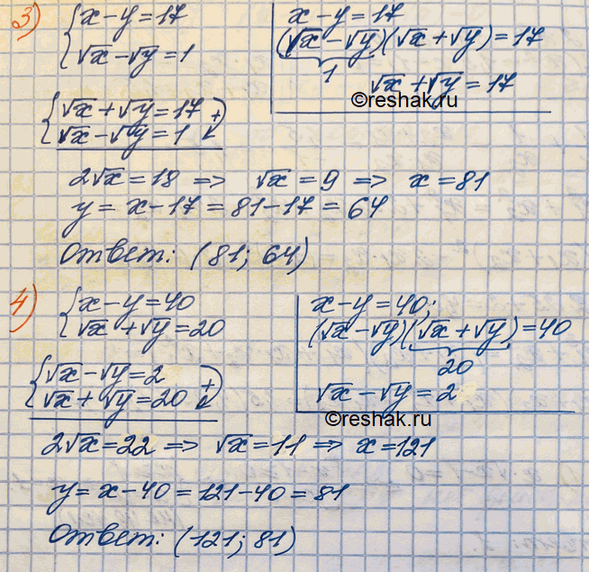 3) { x - y = 17
√x - √y = 1
x - y = 17
(√x - √y)(√x + √y) = 17
1
√x + √y = 17
©reshak.ru
{ √x + √y = 17
√x - √y = 1 +
2√x = 18 => √x = 9 => x = 81
y = x - 17 = 81 - 17 = 64
Ответ: (81; 64)
4) { x - y = 40
√x + √y = 20
x - y = 40;
(√x - √y)(√x + √y) = 40
20
√x - √y = 2
©reshak.ru
{ √x - √y = 2
√x + √y = 20 +
2√x = 22 => √x = 11 => x = 121
y = x - 40 = 121 - 40 = 81
Ответ: (121; 81)